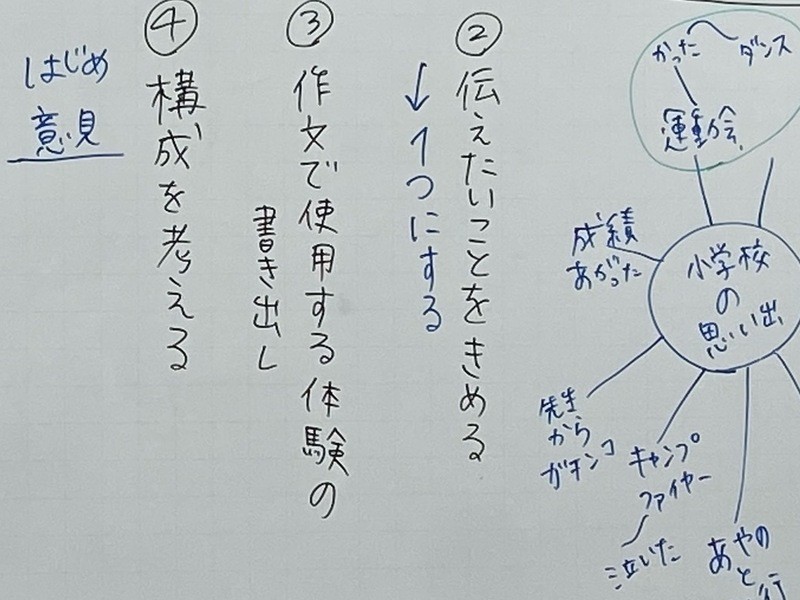 かった
ダンス
運動会
小学校
の
思い出
成績
あがった
先生
から
ガチンコ
キャンプ
ファイヤー
泣いた
あやの
と
行
② 伝えたいことをきめる
↓1つにする
③ 作文で使用する体験の
書き出し
④ 構成を考える
はじめ
意見